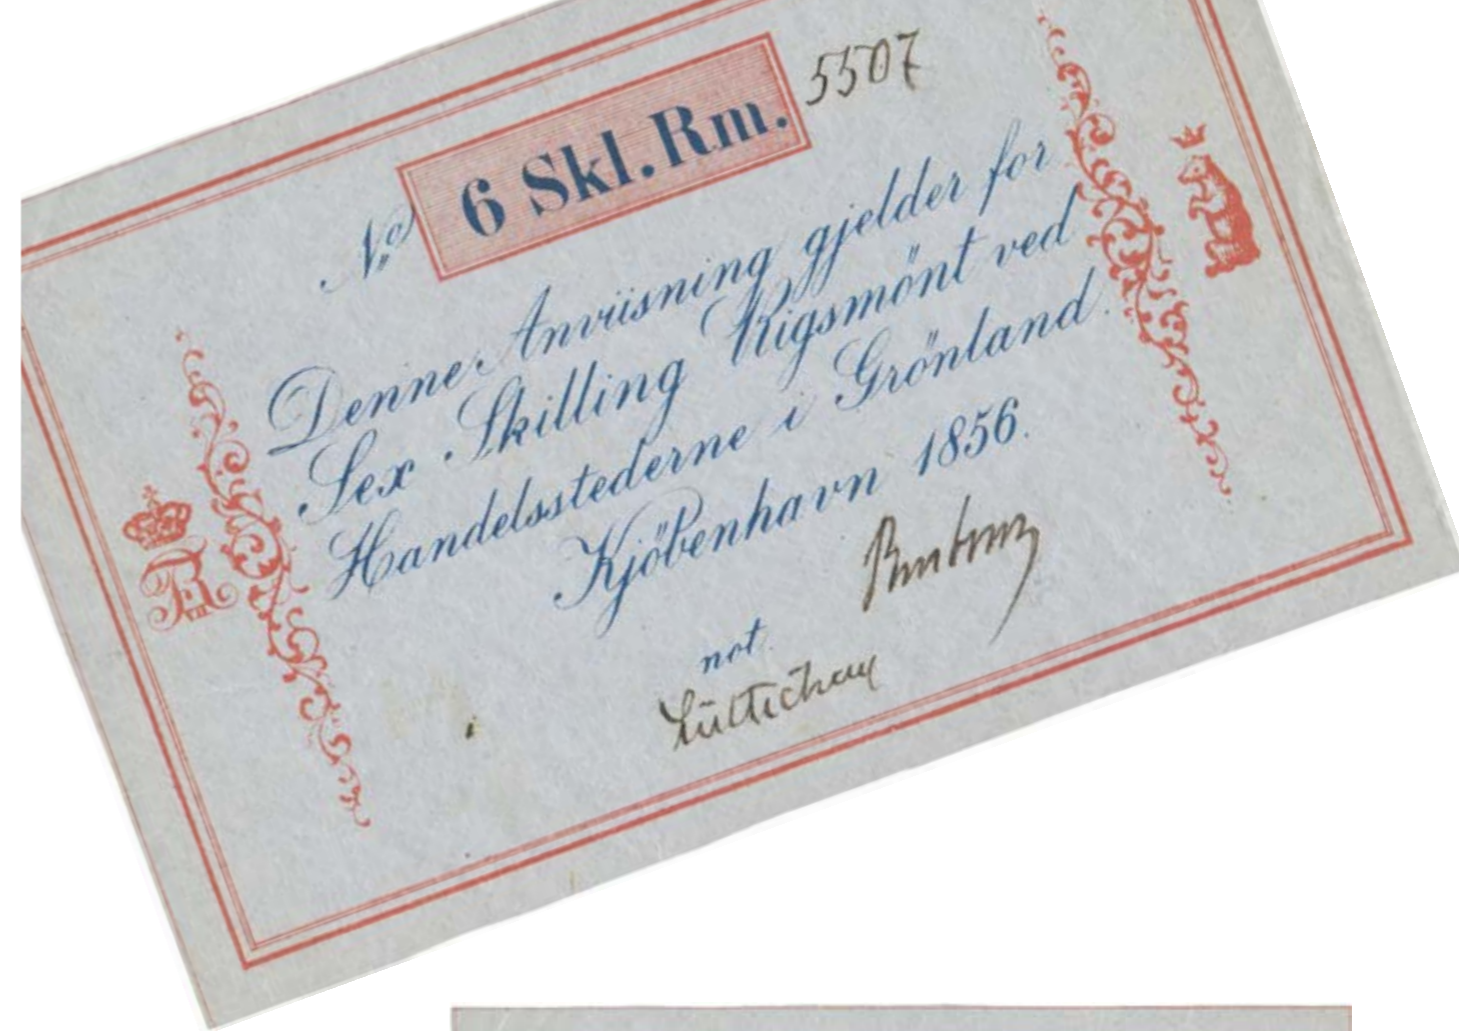 No 6 Skl. Rm. 5507
Denne Anviisning gjelder for
Sex Skilling Rigsmönt ved
Handelsstederne i Grönland.
Kjöbenhavn 1856.
not.
Lüttichau